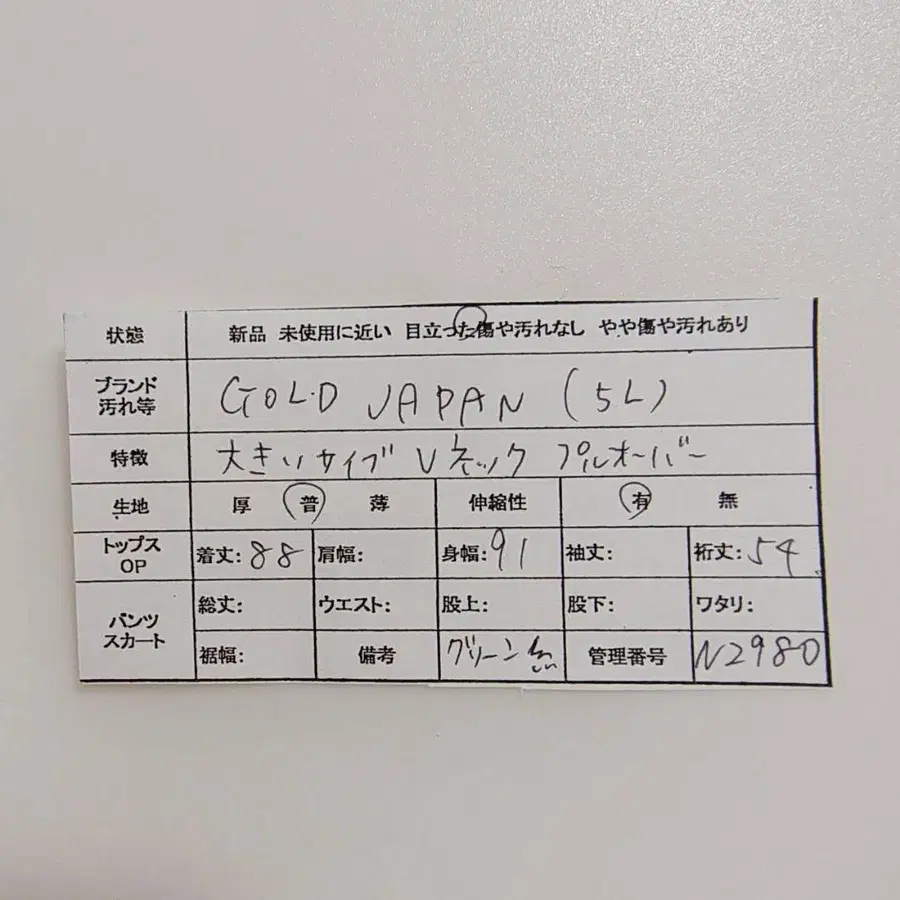 状態 新品 未使用に近い 目立った傷や汚れなし やや傷や汚れあり
ブランド
汚れ等
GOLD JAPAN (5L)
特徴 大きいサイズ Vネック プルオーバー
生地 厚 普 薄 伸縮性 有 無
トップス
OP
着丈: 88 肩幅: 身幅: 91 袖丈: 裄丈: 54
パンツ
スカート
総丈: ウエスト: 股上: 股下: ワタリ:
裾幅: 備考 グリーン 管理番号 N2980